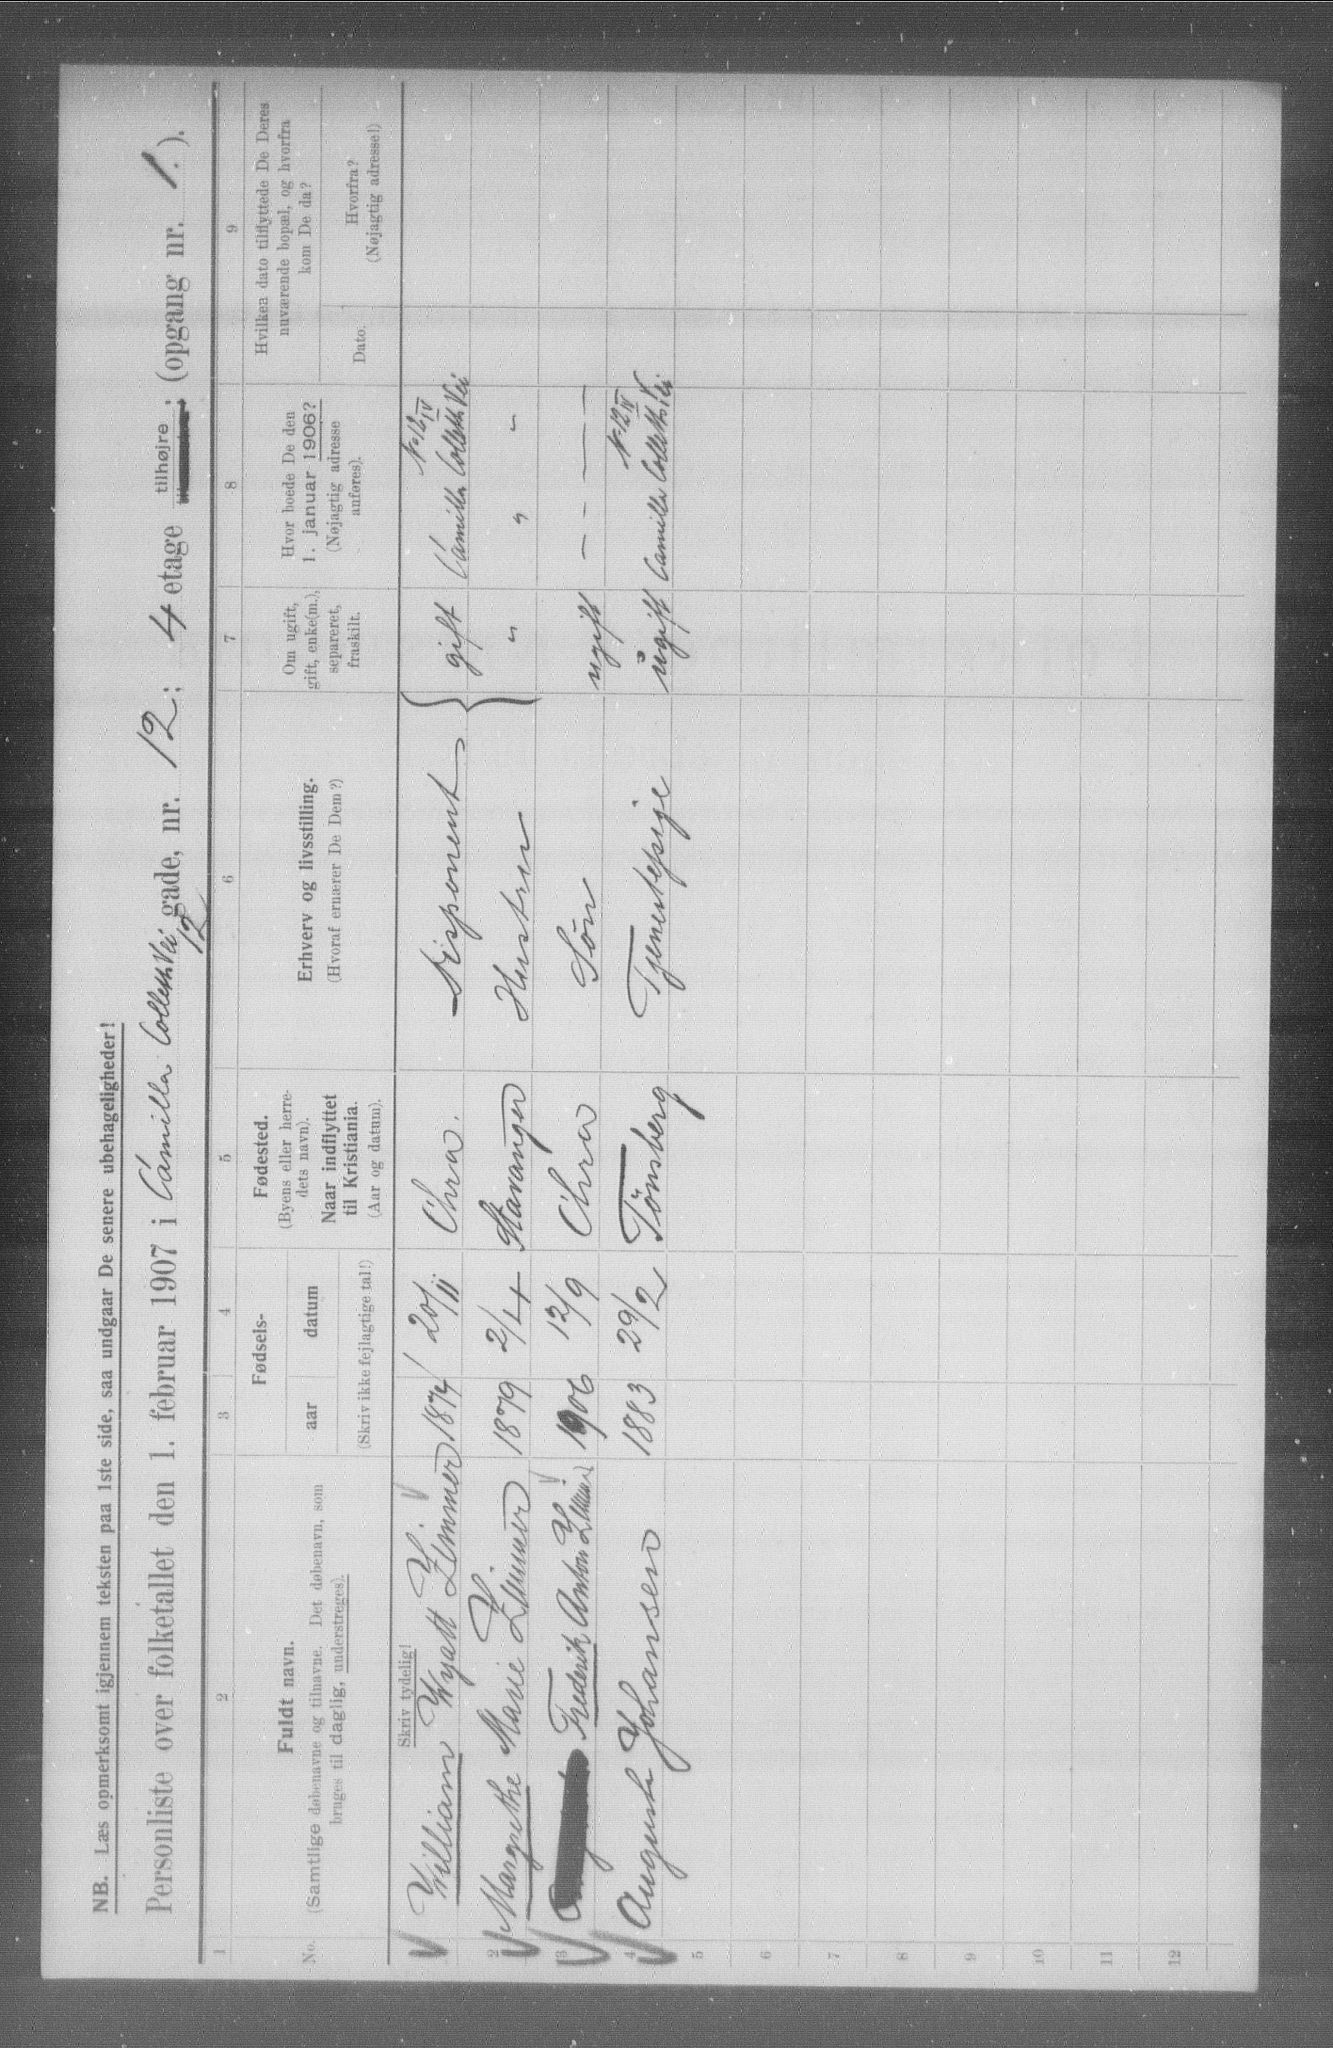 NB. Læs opmerksomt igjennem teksten paa 1ste side, saa undgaar De senere ubehageligheder!
Personliste over folketallet den 1. februar 1907 i Camilla Colletts Vei gade, nr. 12; 4 etage tilhøjre; (opgang nr. 1.).
12
1 2 3 4 5 6 7 8 9
No.
Fuldt navn.
(Samtlige døbenavne og tilnavne. Det døbenavn, som
bruges til daglig, understreges).
Fødsels-
aar datum
(Skriv ikke fejlagtige tal!)
Fødested.
(Byens eller herre-
dets navn).
Naar indflyttet
til Kristiania.
(Aar og datum).
Erhverv og livsstilling.
(Hvoraf ernærer De Dem?)
Om ugift,
gift, enke(m.),
separeret,
fraskilt.
Hvor boede De den
1. januar 1906?
(Nøjagtig adresse
anføres).
Hvilken dato tilflyttede De Deres
nuværende bopæl, og hvorfra
kom De da?
Dato.
Hvorfra?
(Nøjagtig adresse!)
Skriv tydelig!
William Wyatt Zimmer 1874 20/11 Chra. Disponent gift Camilla Colletts Vei № 12 IV
2 Margrethe Marie Zimmer 1879 2/4 Stavanger Hustru " " "
3 Frederik Anton Zimmer 1906 12/9 Chra Sön ugift — — — —
4 Augusta Johansen 1883 29/2 Tönsberg Tjenestepige ugift Camilla Colletts Vei № 12 IV
5
6
7
8
9
10
11
12